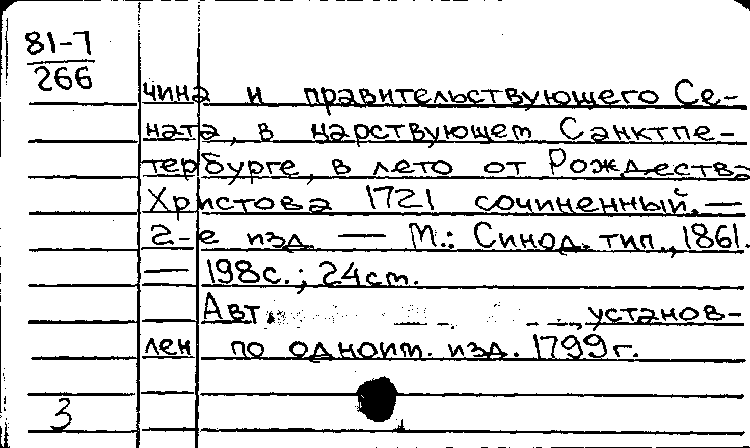 81-7
266
чина и правительствующего Се-
ната, в царствующем Санктпе-
тербурге, в лето от Рождества
Христова 1721 сочиненный. —
2-е изд. — М.: Синод. тип., 1861.
— 198с.; 24см.
Авт. установ-
лен по одноим. изд. 1799г.
3